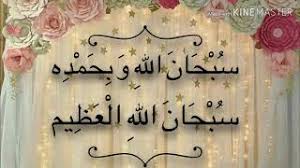 Made with KINEMASTER
سُبْحَانَ اللهِ وَ بِحَمْدِهِ
سُبْحَانَ اللهِ الْعَظِيم